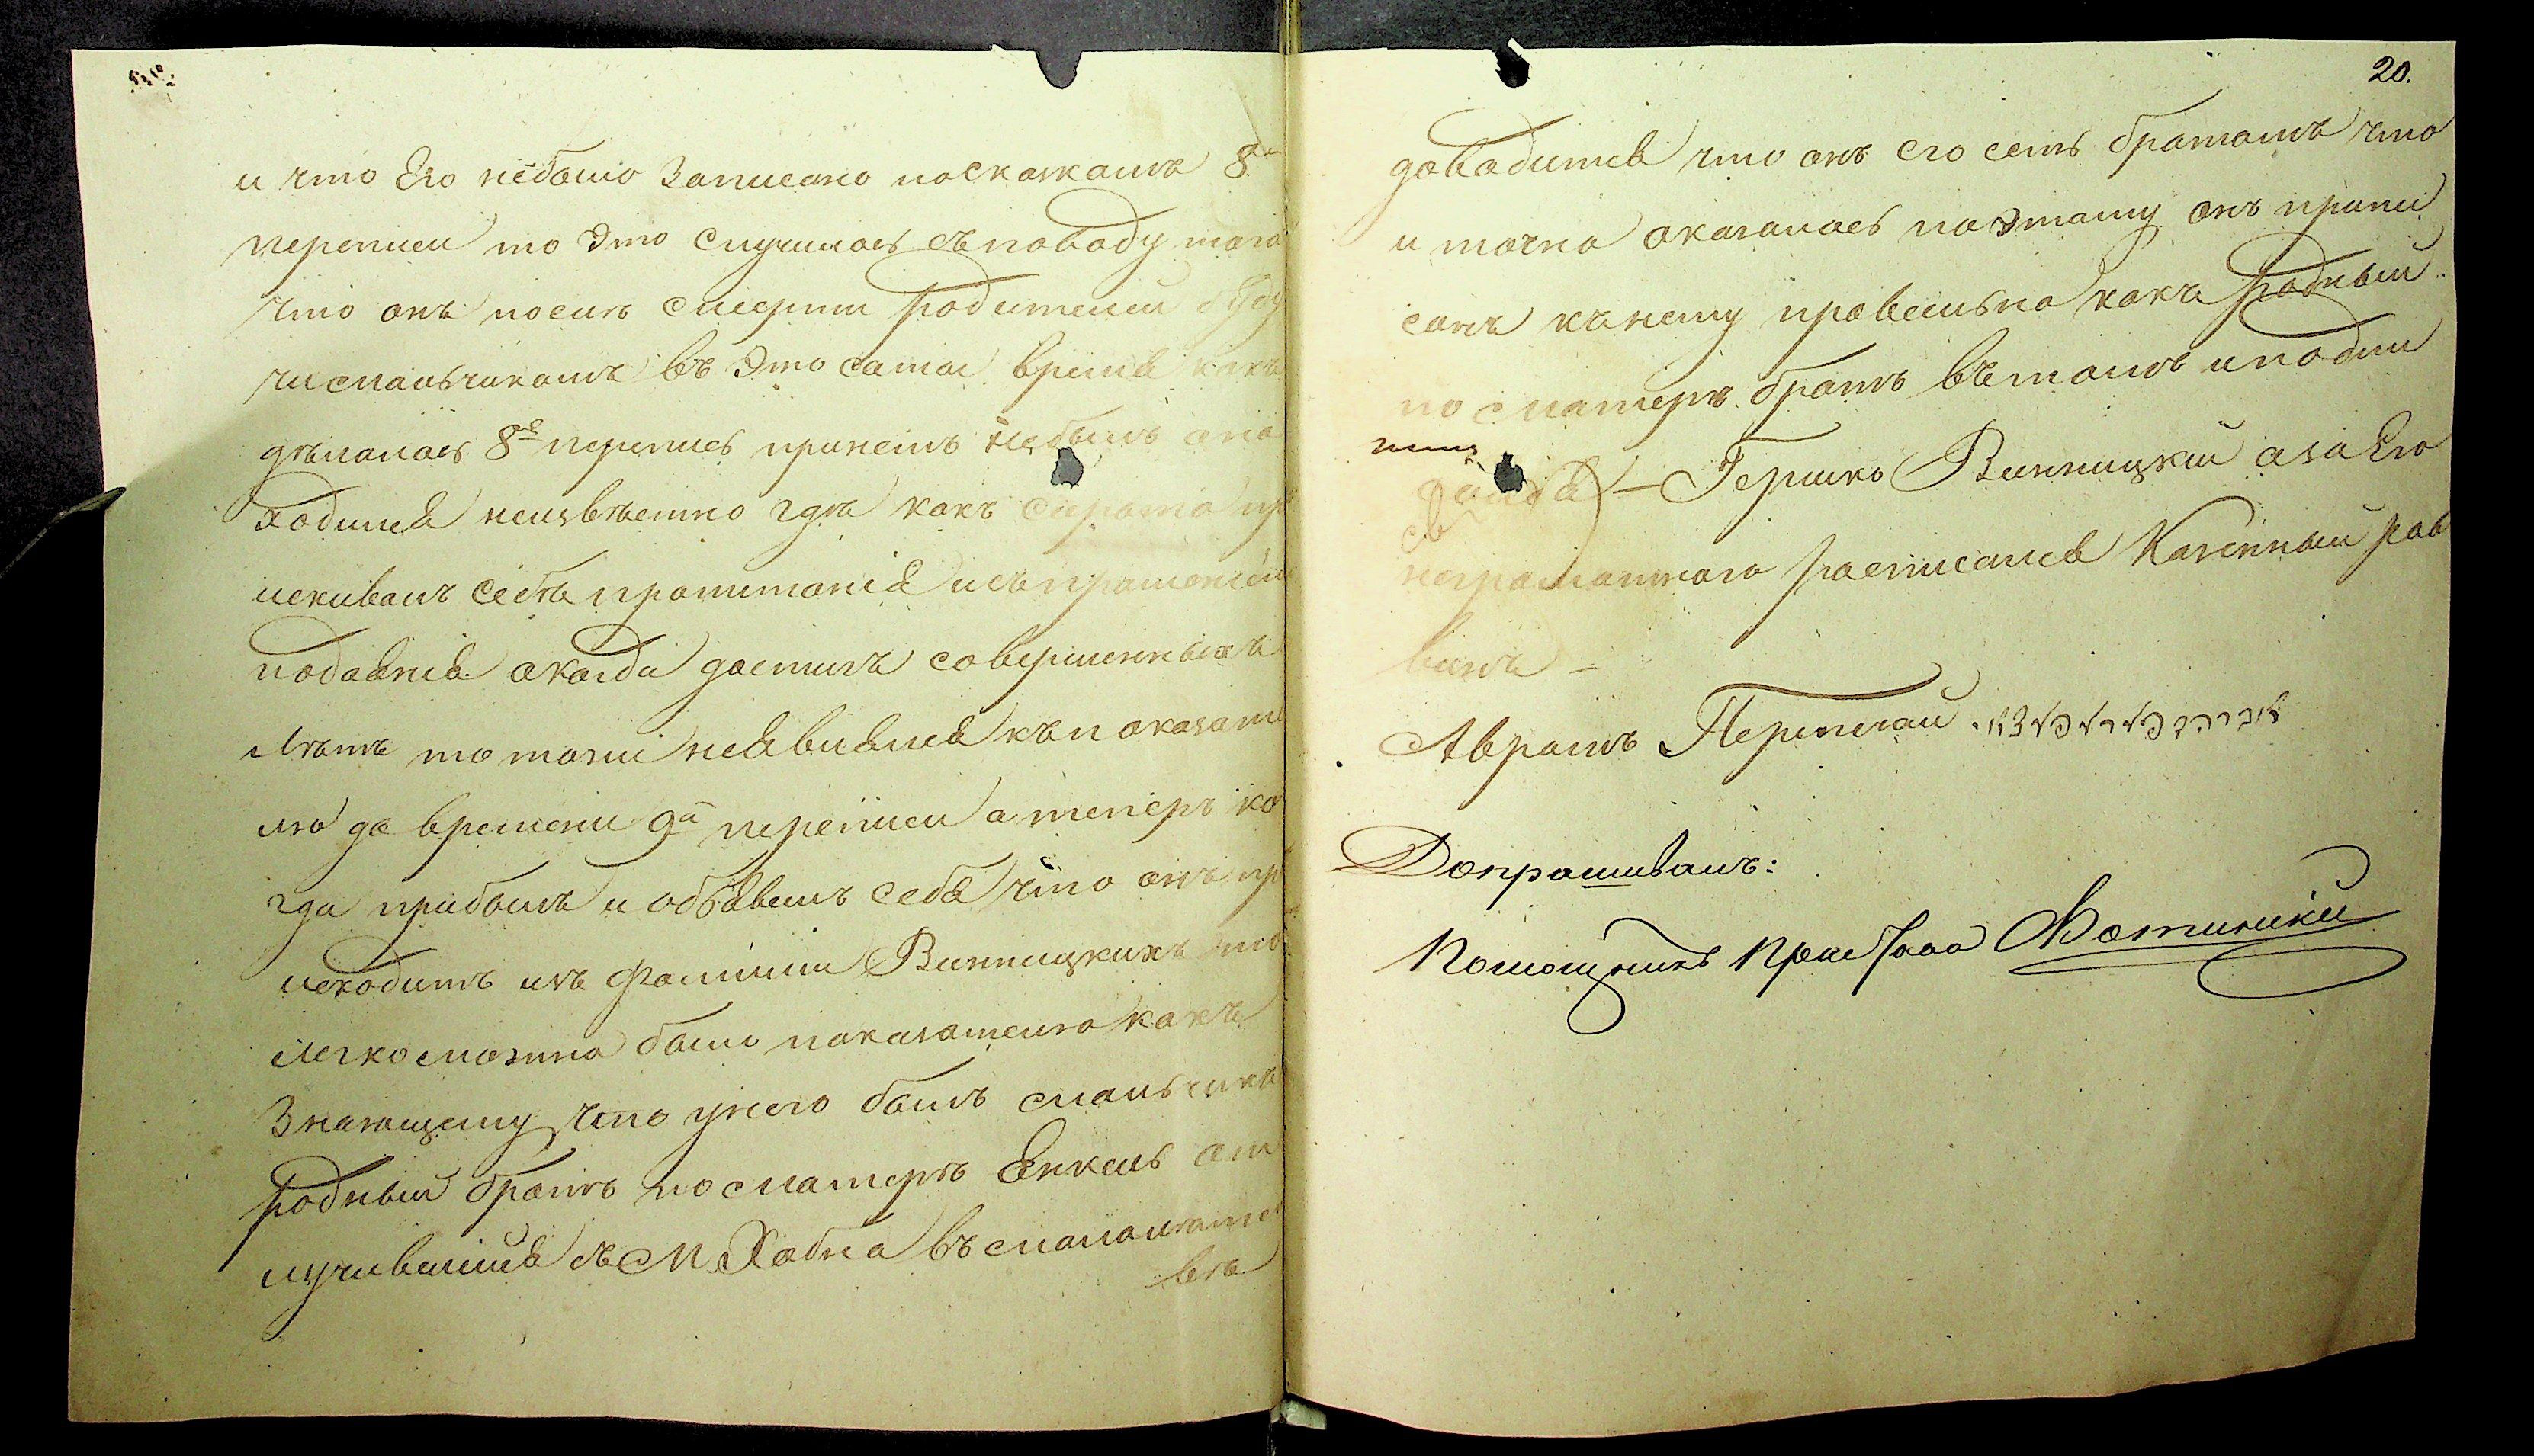 и что Его небыло Записано посказкамъ 8й
переписи то Это случилось съ поводу того
что онъ посль смерти родителей буду
чи смальчикомъ въ Это самое время какъ
дѣлалась 8я перепись принемъ небылъ ано
ходился неизвѣстно гдѣ какъ сирота пр
искивалъ себѣ пропитанія исъпрошеніем
подаянія акогда достигъ совершенныхъ
лѣтъ то тоже неявился къ показате
лю до времени 9й переписи а теперь ко
гда прибылъ и объявилъ себя что онъ пр
исходитъ изъ фамиліи Винницкихъ то
легко можно было показателю какъ
Знающему что унего былъ смальчикъ
родный братъ посматерѣ Янкель от
лучившійся съ М. Хабна въ смалолѣтс
вѣ
20.
доводится что онъ его есть братомъ что
и точно оказалось поэтому онъ припи
санъ кънему правильно какъ родный
посматерѣ братъ вѣтомъ иподпи
Гершко Винницкій аза Его
неграмотного росписался Казенный рав
винъ —
Аврамъ Перепечай
Допрашивалъ:
Помощникъ Пристава